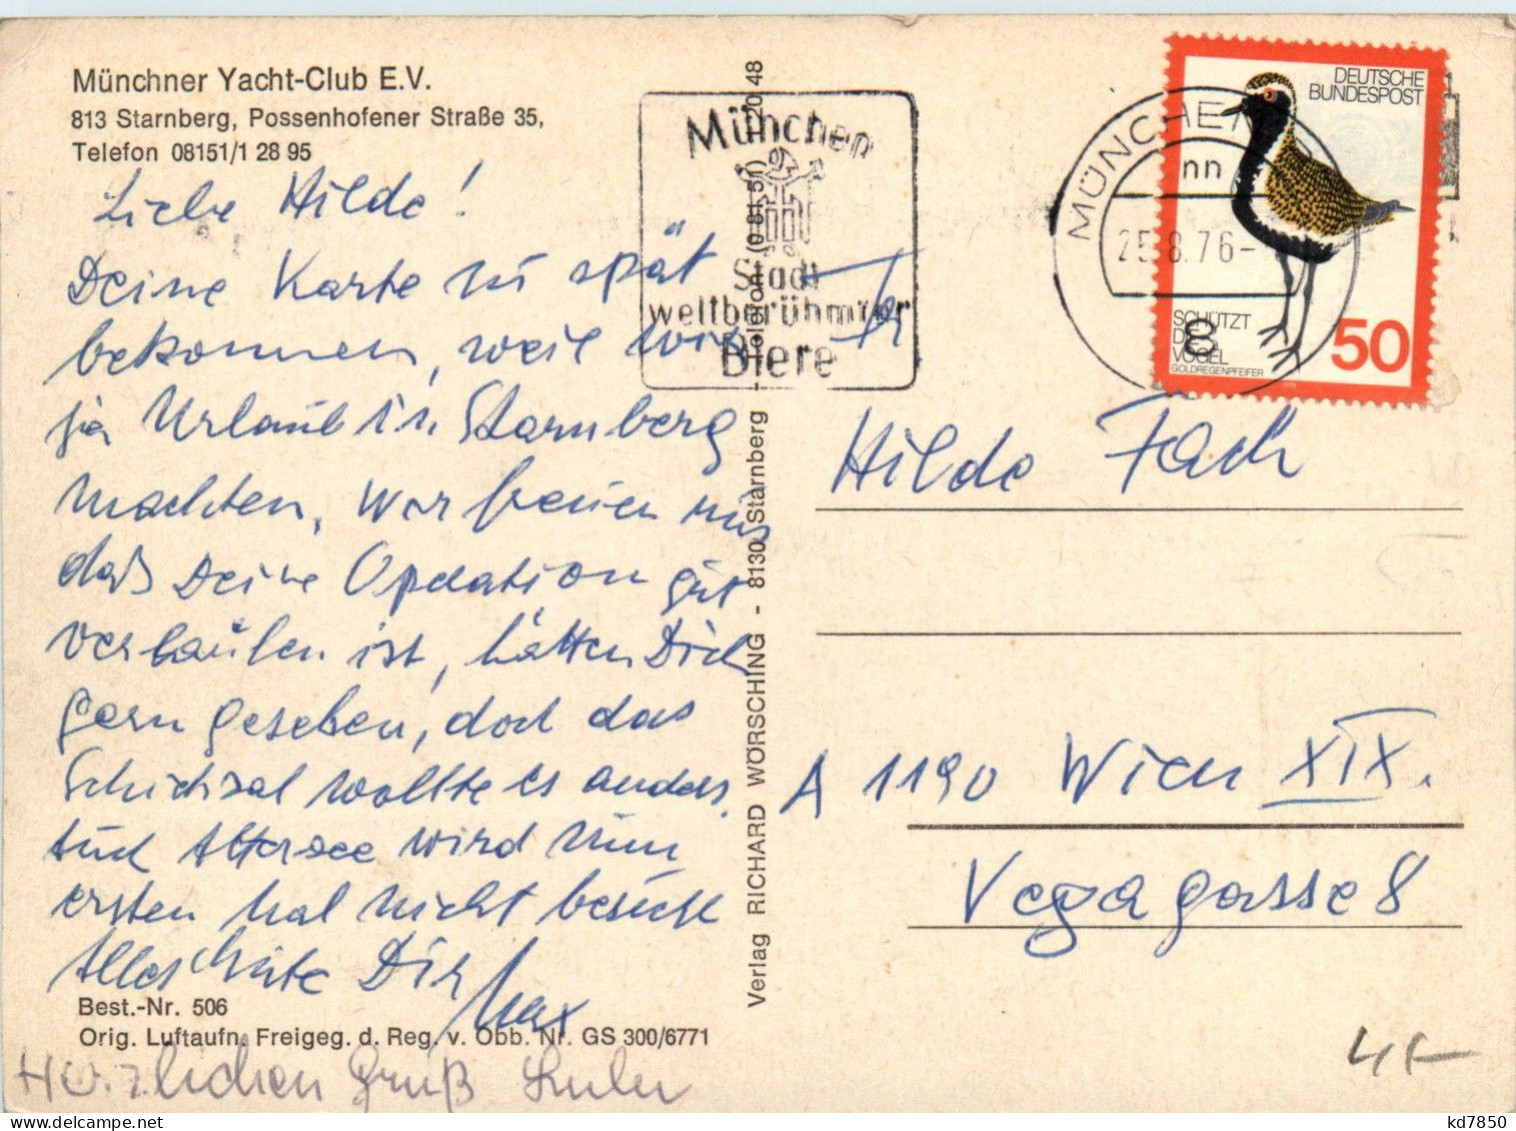 Münchner Yacht-Club E.V.
813 Starnberg, Possenhofener Straße 35,
Telefon 08151/1 28 95
Liebe Hilde!
Deine Karte zu spät
bekommen, weil wir
ja Urlaub in Starnberg
machten, Wir freuen uns
daß Deine Operation gut
verlaufen ist, hätten Dich
gern gesehen, doch das
Schicksal wollte es anders.
Auch Attersee wird zum
ersten Mal nicht besucht
Alles Gute Dir
Max
Best.-Nr. 506
Orig. Luftaufn. Freigeg. d. Reg. v. Obb. Nr. GS 300/6771
Herzlichen Gruß
Verlag RICHARD WÖRSCHING - 8130 Starnberg - Telefon (0 81 51) 20 48
München
Stadt
weltberühmter
Biere
MÜNCHEN
nn
25.8.76-
8
DEUTSCHE
BUNDESPOST
SCHÜTZT
DIE
VÖGEL
GOLDREGENPFEIFER
50
1976
Hilde Fach
A 1190 Wien XIX.
Vegagasse 8
kd7850